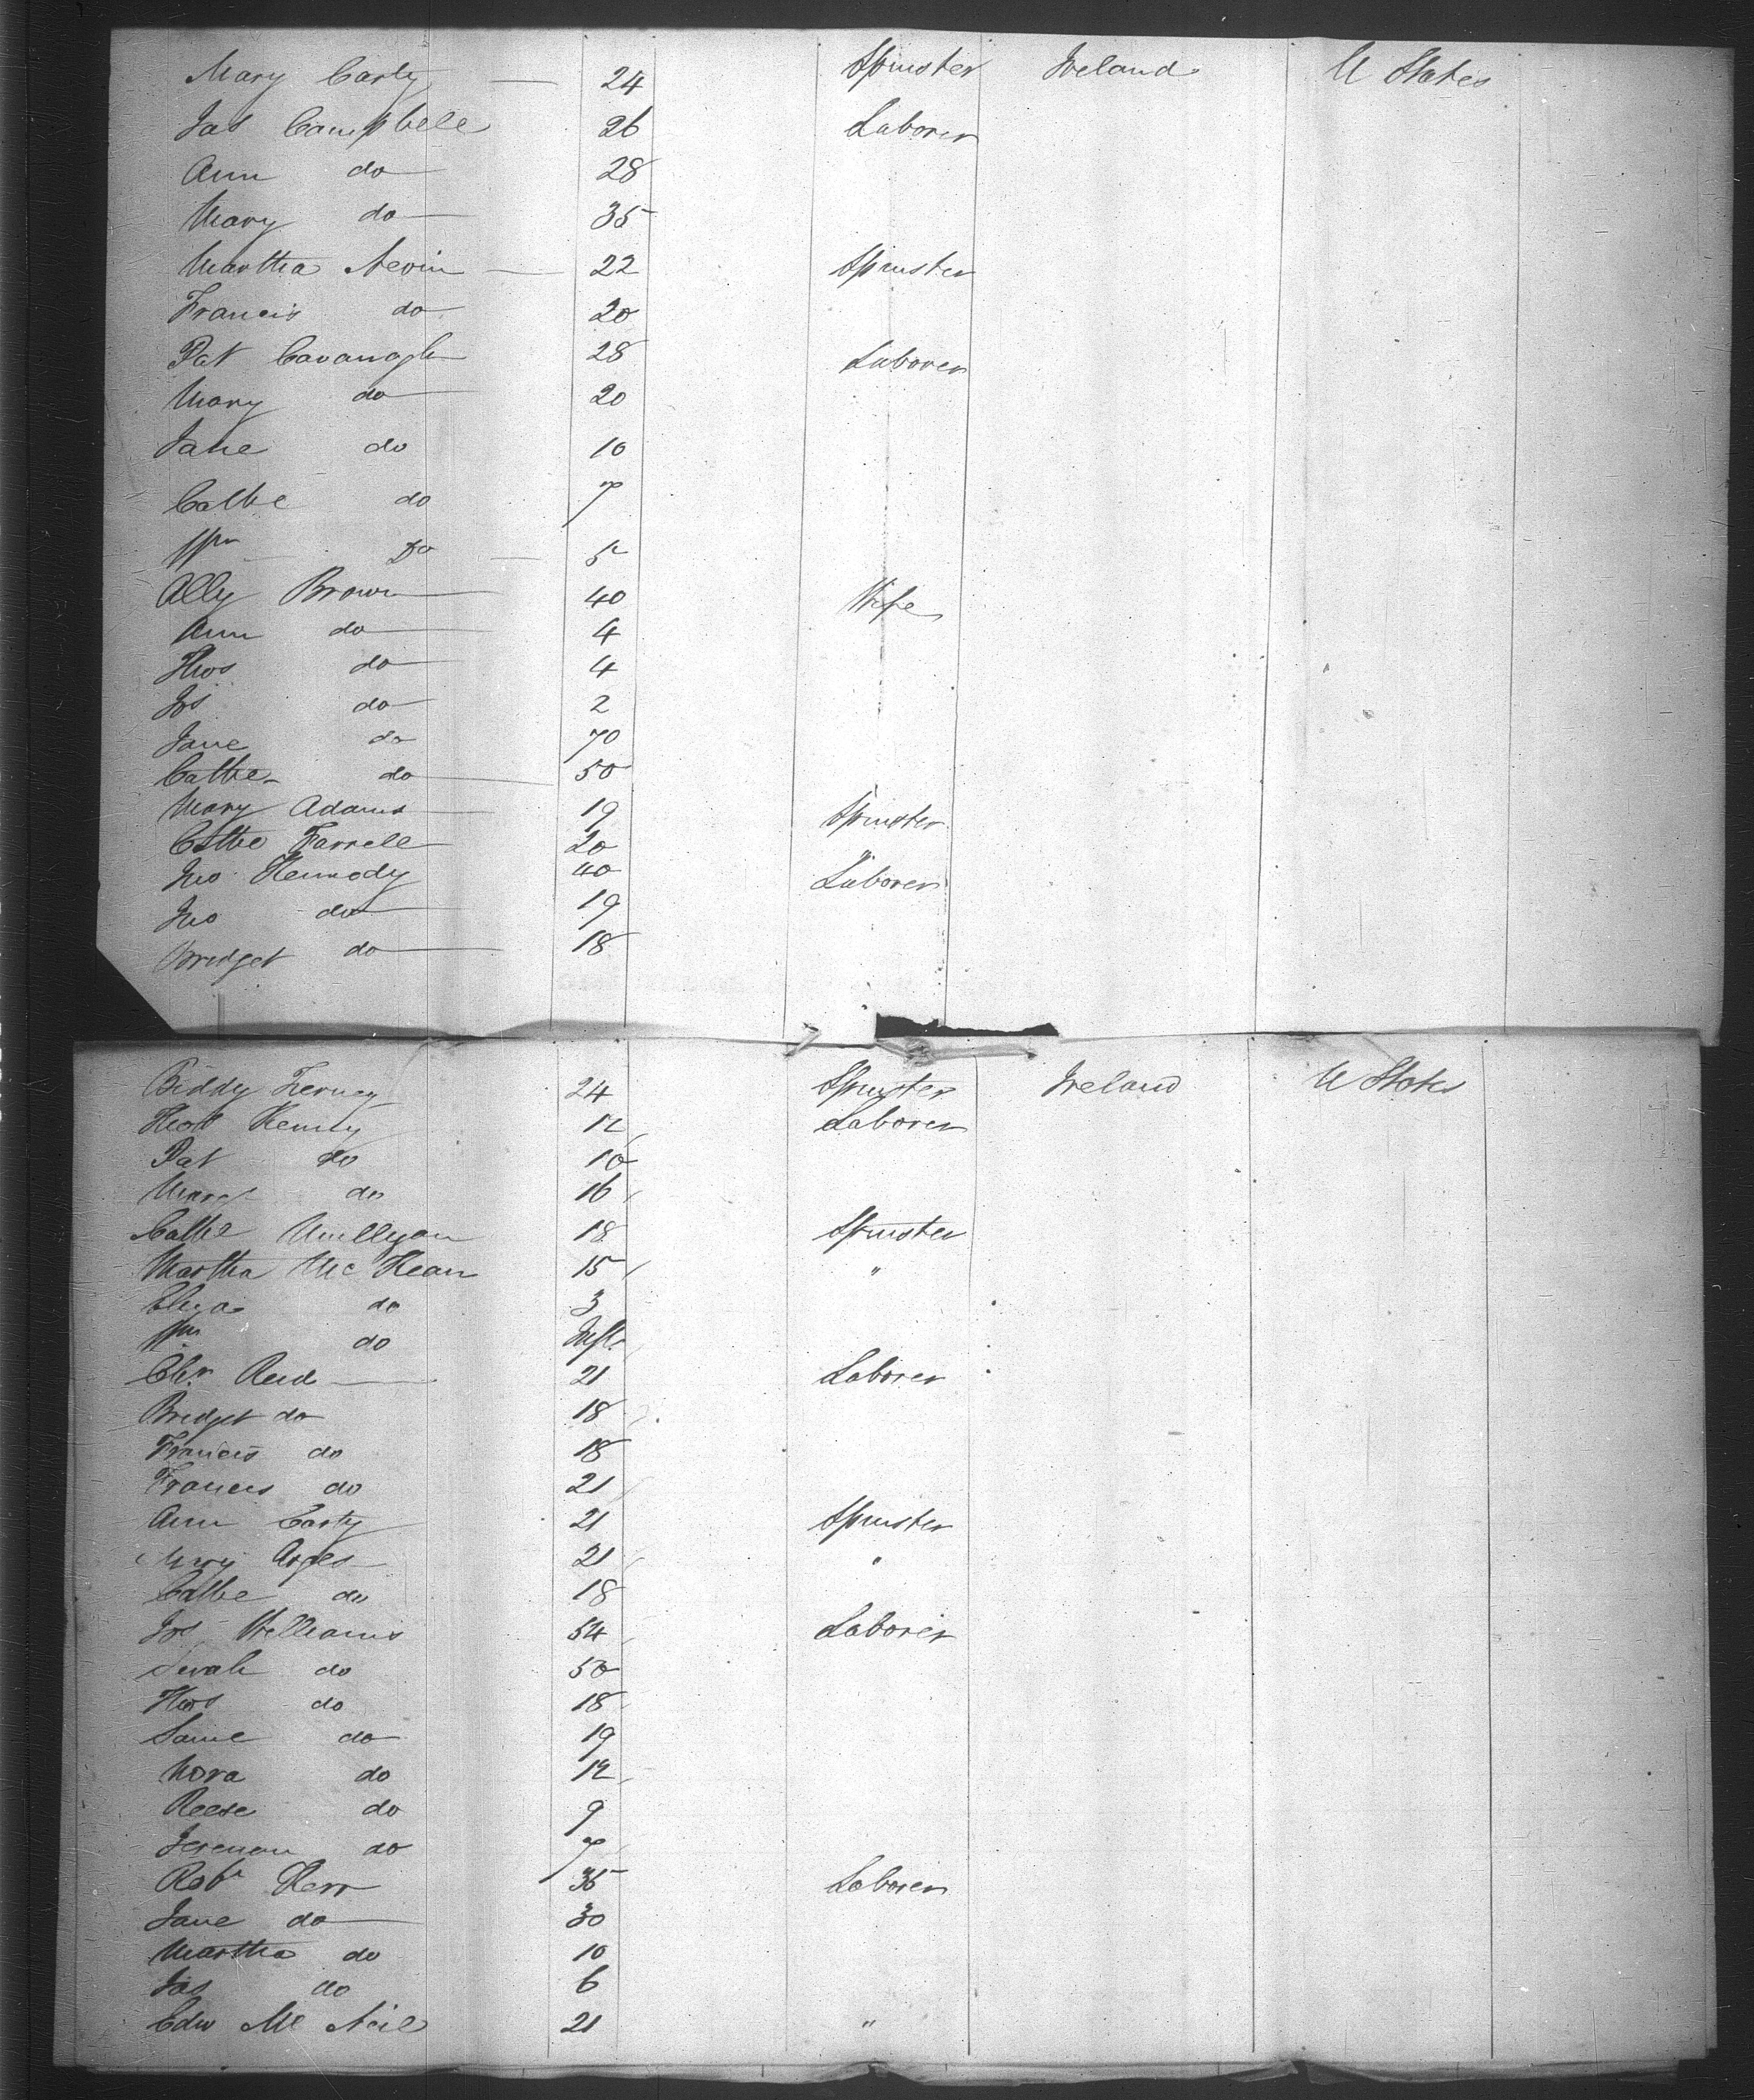 Mary Carty 24 Spinster Ireland U States
Jas Campbell 26 Laborer
Ann do 28
Mary do 35
Martha Nevin 22 Spinster
Francis do 20
Pat Cavanagh 28 Laborer
Mary do 20
Jane do 10
Cathe do 7
Wm Do 5
Ally Brown 40 Wife
Ann do 4
Thos do 4
Jos do 2
Jane do 70
Cathe do 50
Mary Adams 19 Spinster
Cathe Farrell 20 "
Jno Kennedy 40 Laborer
Jno do 19
Bridget do 18
Biddy 24 Spinster Ireland U States
Thos Kenny 12 Laborer
Pat do 10
Margt do 16
Cathe Mullygan 18 Spinster
Martha Mc Kean 15 "
Eliza do 3
Wm do Inft
Reid 21 Laborer
Bridget do 18
Francis do 18
Francis do 21
Ann Carty 21 Spinster
Mary 21 "
Cathe do 18
Jos Williams 54 Laborer
Sarah do 50
Thos do 18
do 19
Nora do 12
Reese do 9
do 7
Robt Kerr 35 Laborer
Jane do 30
Martha do 10
Jas do 6
Edw Mc Neil 21 "